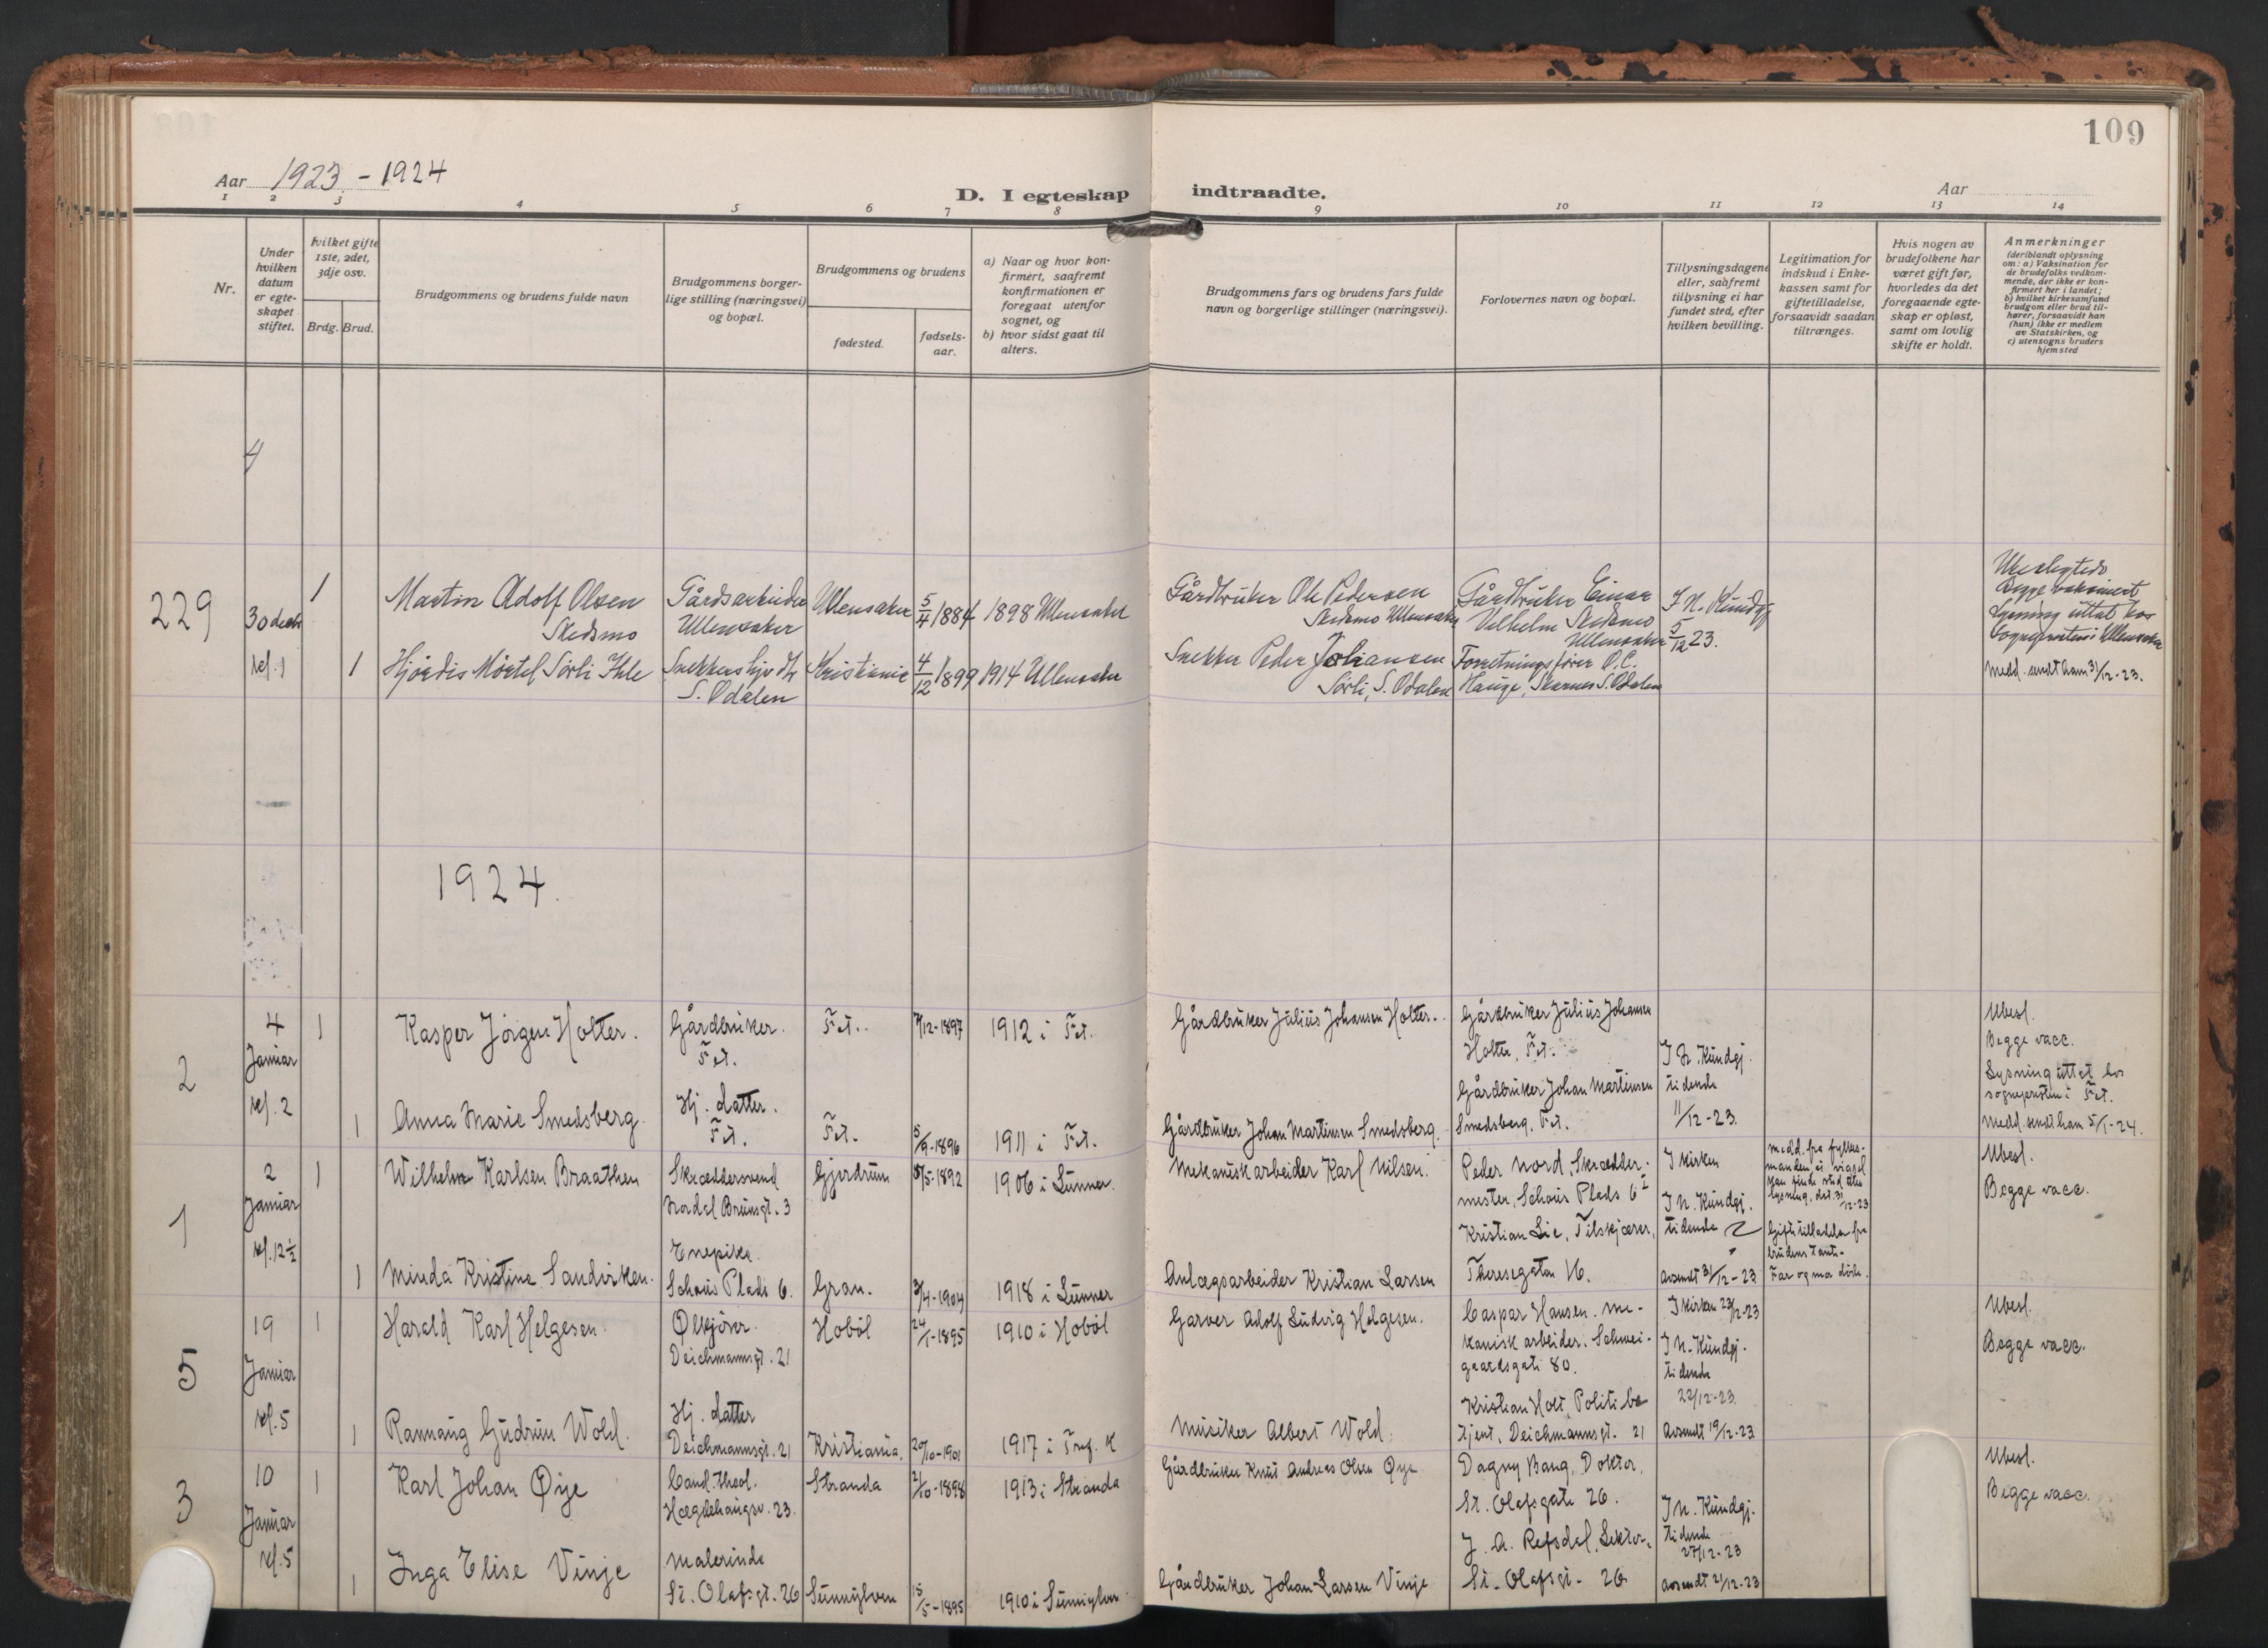 109
Aar 1923 - 1924
D. I egteskap indtraadte.
Aar
1 2 3 4 5 6 7 8 9 10 11 12 13 14
Nr.
Under hvilken datum er egteskapet stiftet.
Hvilket gifte 1ste, 2det, 3dje osv.
Brdg. Brud.
Brudgommens og brudens fulde navn
Brudgommens borgerlige stilling (næringsvei) og bopæl.
Brudgommens og brudens
fødested.
fødselsaar.
a) Naar og hvor konfirmert, saafremt konfirmationen er foregaat utenfor sognet, og
b) hvor sidst gaat til alters.
Brudgommens fars og brudens fars fulde navn og borgerlige stillinger (næringsvei).
Forlovernes navn og bopæl.
Tillysningsdagene eller, saafremt tillysning ei har fundet sted, efter hvilken bevilling.
Legitimation for indskud i Enkekassen samt for giftetilladelse, forsaavidt saadan tiltrænges.
Hvis nogen av brudefolkene har været gift før, hvorledes da det foregaaende egteskap er opløst, samt om lovlig skifte er holdt.
Anmerkninger
(deriblandt oplysning om: a) Vaksination for de brudefolks vedkommende, der ikke er konfirmert her i landet;
b) hvilket kirkesamfund brudgom eller brud tilhører, forsaavidt han (hun) ikke er medlem av Statskirken, og
c) utensogns bruders hjemsted
229
30 decbr
kl. 1
1
Martin Adolf Olsen
Skedsmo
Gårdsarbeider
Ullensaker
Ullensaker
5/4 1884
1898 Ullensaker
Gårdbruker Ole Pedersen
Skedsmo Ullensaker
Gårdbruker Einar
Vilhelm Skedsmo
Ullensaker
I N. Kundgj
5/12 23.
Ubeslegtede
Begge vaksinert
Lysning uttat hos
Sognepresten i Ullensaker
Medd. sendt ham 31/12-23.
1
Hjørdis Sørli Ihle
Snekkers hjv. dtr
S. Odalen
Kristiania
4/12 1899
1914 Ullensaker
Snekker Peder Johansen
Sørli, S. Odalen
Forretningsfører O.C.
Hauge, Skarnes S. Odalen
1924.
2
4
Januar
kl. 2
1
Kasper Jørgen Holter.
Gårdbruker.
Fet.
Fet.
7/12-1897
1912 i Fet.
Gårdbruker Julius Johansen Holter.
Gårdbruker Julius Johansen
Holter, Fet.
Gårdbruker Johan Martinsen
Smedsberg, Fet.
I N. Kundgj.
tidende
11/12-23.
Ubesl.
Begge vacc.
Lysning uttat hos
sognepresten i Fet.
Medd. sendt ham 5/1-24.
1
Anna Marie Smedsberg
Hj. datter.
Fet.
Fet.
5/9-1896
1911 i Fet.
Gårdbruker Johan Martinsen Smedsberg.
1
2
Januar
kl. 12½
1
Wilhelm Karlsen Braathen
Skræddersvend
Nordal Brunsgt. 3
Gjerdrum
5/5-1892
1906 i Lunner.
Mekanisk arbeider Karl Nilsen.
Peder Nord, Skrædder-
mester, Schous Plads 6
Kristian Lie, Filskjærer,
Theresegaten 16.
I kirken
I N. Kundgj.
tidende
Avsendt 31/12-23
Medd. fra fylkes-
manden, at vigsel
kan finde sted uten
lysning, dat. 31/12-23
Giftetilladelse fra
brudens tante.
Far og mor døde.
Ubesl.
Begge vacc.
1
Minda Kristine Sandvirken.
Enepike.
Schous Plads 6.
Gran.
3/4-1904
1918 i Lunner
Anlægsarbeider Kristian Larsen
5
19
Januar
kl. 5
1
Harald Karl Helgesen.
Ølkjører.
Deichmannsgt. 21
Hobøl
24/1-1895
1910 i Hobøl
Garver Adolf Ludvig Helgesen.
Caspar Hansen, me-
kanisk arbeider. Schwei-
gaardsgate 80.
Kristian Holt, Politibe-
tjent, Deichmannsgt. 21
I kirken 23/12-23
I N. Kundgj.
tidende
22/12-23.
Avsendt 19/12-23
Ubesl.
Begge vacc.
1
Rannaug Gudrun Wold.
Hj. datter
Deichmannsgt. 21
Kristiania.
20/10-1901
1917 i Tref. K
Musiker Albert Wold.
3
10
Januar
kl. 5
1
Karl Johan Øye
Cand. theol.
Hægdehaugsv. 23.
Stranda
2/10-1898
1913 i Stranda
Gårdbruker Knut Andreas Olsen Øye
Dagny Bang, Doktor,
St. Olafsgate 26.
J. A. Refsdal, Lektor,
St. Olafsgt. 26
I N. Kundgj.
tidende
27/12-23
Avsendt 21/12-23
Ubesl.
Begge vacc.
1
Inga Elise Vinje
Malerinde
St. Olafsgt. 26
Sunnylven
15/5-1895
1910 i Sunnylven
Gårdbruker Johan Larsen Vinje